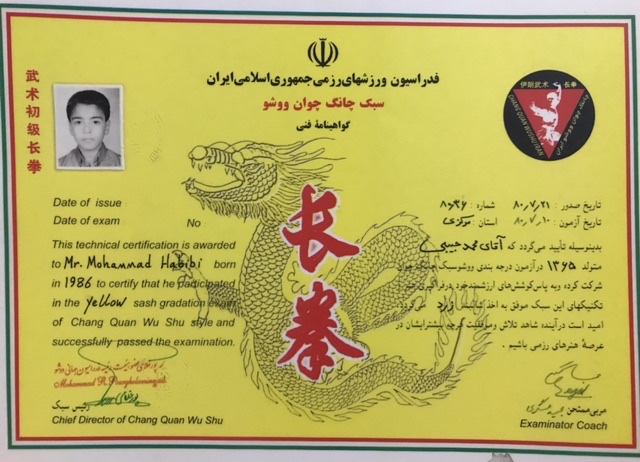 فدراسیون ورزشهای رزمی جمهوری اسلامی ایران
سبک چانگ چوان ووشو
گواهینامهٔ فنی
武术初级长拳
伊朗武术 长拳
CHANG QUAN WUSHU IRAN
Date of issue :
Date of exam No :
This technical certification is awarded
to Mr. Mohammad Habibi born
in 1986 to certify that he participated
in the yellow sash gradation exam
of Chang Quan Wu Shu style and
successfully passed the examination.
长拳
تاریخ صدور : ۸۰٫۷٫۲۱ شماره : ۸۶۳۶
تاریخ آزمون : ۸۰٫۷٫۱۰ استان مرکزی
بدینوسیله تأیید می‌گردد که آقای محمد حبیبی
متولد ۱۳۶۵ در آزمون درجه بندی ووشو سبک چانگ چوان
شرکت کرده و به پاس کوشش‌های ارزشمند خود در فراگیری فنی
تکنیکهای این سبک موفق به اخذ شال زرد گردید
امید است در آینده شاهد تلاش و موفقیت هرچه بیشتر ایشان در
عرصهٔ هنرهای رزمی باشیم .
رئیس سبک
Chief Director of Chang Quan Wu Shu
مربی ممتحن
Examinator Coach